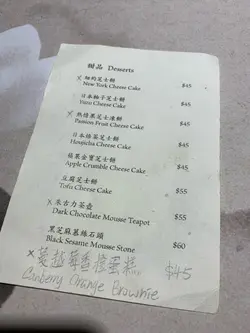 甜品 Desserts
×紐約芝士餅
New York Cheese Cake $45
日本柚子芝士餅
Yuzu Cheese Cake $45
×熱情果芝士凍餅
Passion Fruit Cheese Cake $45
日本焙茶芝士餅
Houjicha Cheese Cake $45
蘋果金寶芝士餅
Apple Crumble Cheese Cake $45
豆腐芝士餅
Tofu Cheese Cake $55
×朱古力茶壺
Dark Chocolate Mousse Teapot $55
黑芝麻慕絲石頭
Black Sesame Mousse Stone $60
×蔓越莓香橙蛋糕
Canberry Orange Brownie $45